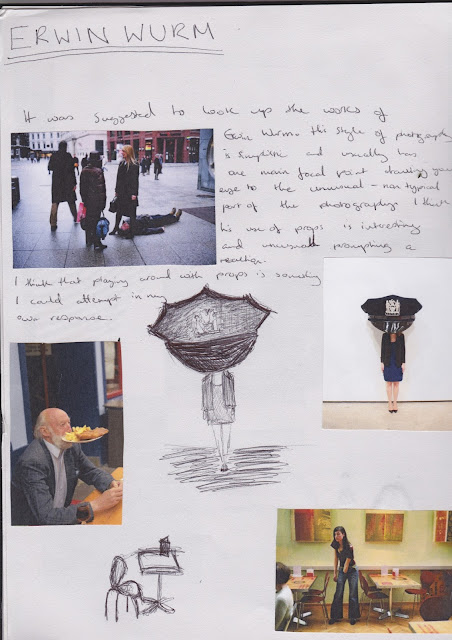 ERWIN WURM
It was suggested to look up the works of
Erwin Wurm. His style of photography
is simplistic and usually has
one main focal point drawing your
eye to the unusual - non typical
part of the photography. I think
his use of props is interesting
and unusual prompting a
reaction.
I think that playing around with props is something
I could attempt in my
own response.